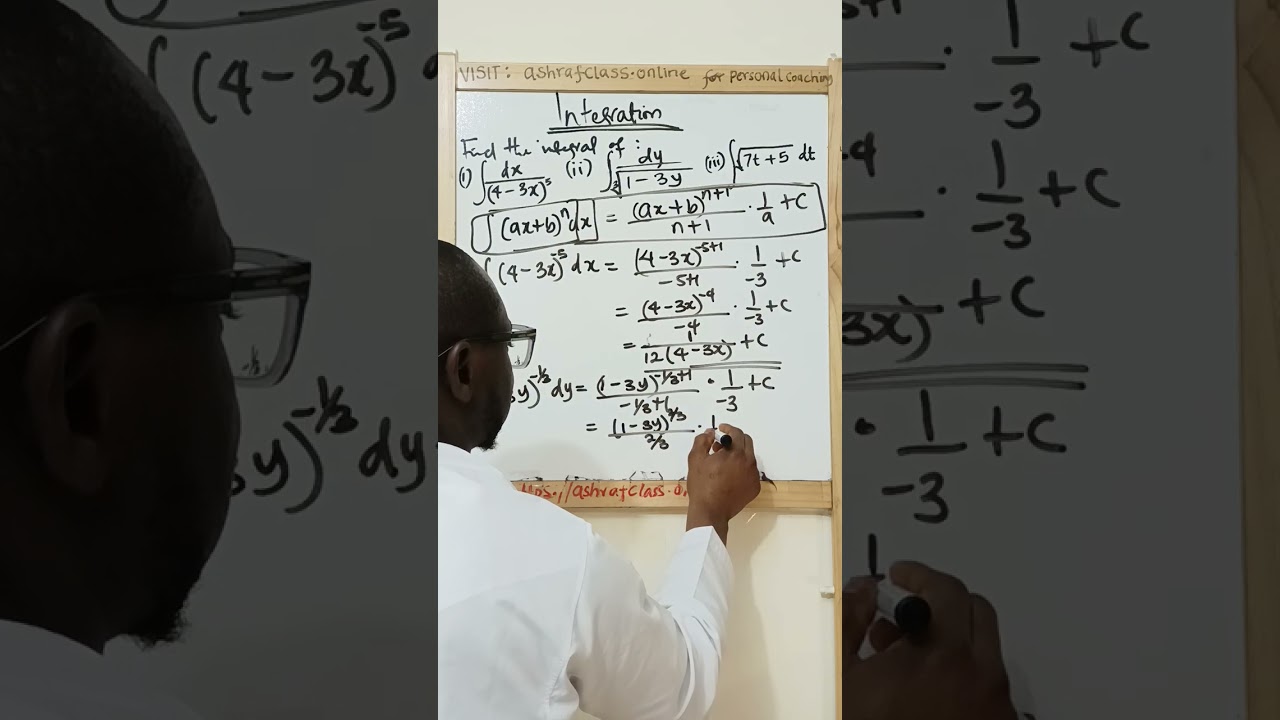 VISIT: ashrafclass.online for personal coaching
Integration
Find the integral of:
(i) ∫ dx/(4-3x)^5 (ii) ∫ dy/∛(1-3y) (iii) ∫ √(7t+5) dt
∫ (ax+b)^n dx = (ax+b)^(n+1)/(n+1) · 1/a + C
∫ (4-3x)^-5 dx = (4-3x)^(-5+1)/(-5+1) · 1/-3 + C
= (4-3x)^-4/-4 · 1/-3 + C
= 1/12(4-3x) + C
y)^-1/3 dy = (1-3y)^(-1/3+1)/(-1/3+1) · 1/-3 + C
= (1-3y)^(2/3)/(2/3) · 1